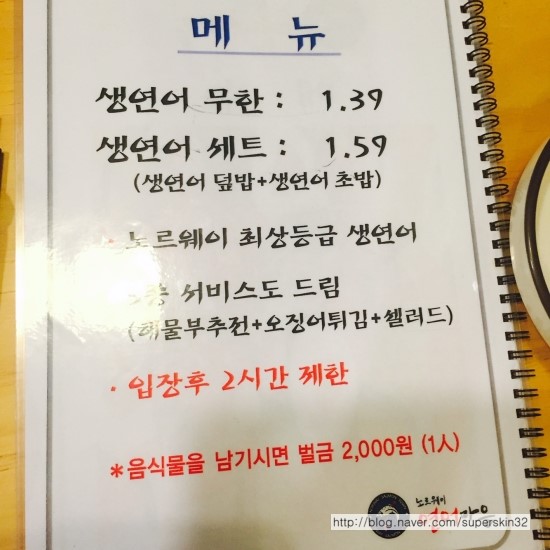 메 뉴
생연어 무한 : 1.39
생연어 세트 : 1.59
(생연어 덮밥+생연어 초밥)
· 노르웨이 최상등급 생연어
서비스도 드림
(해물부추전+오징어튀김+쎌러드)
· 입장후 2시간 제한
*음식물을 남기시면 벌금 2,000원 (1人)
노르웨이
http://blog.naver.com/superskin32